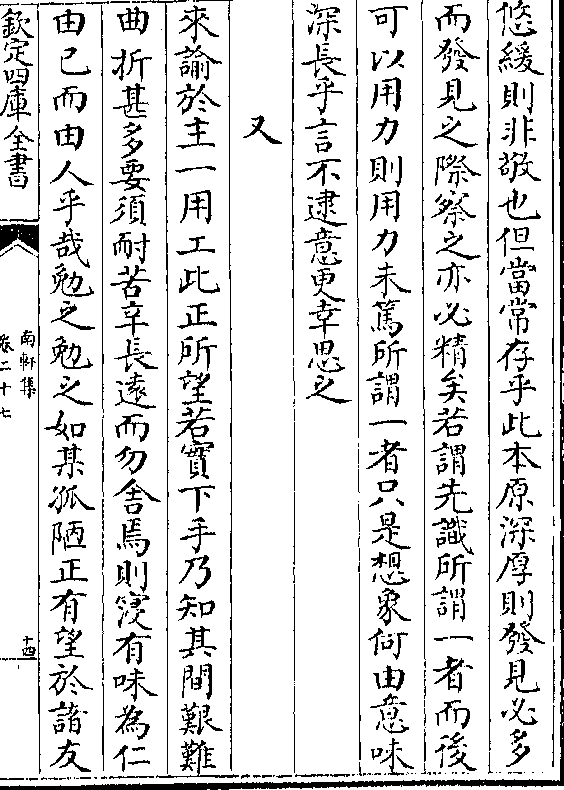 悠緩則非敬也但當常存乎此本原深厚則發見必多
而發見之際察之亦必精矣若謂先識所謂一者而後
可以用力則用力未篤所謂一者只是想象何由意味
深長乎言不逮意更幸思之
又
來諭於主一用工此正所望若實下手乃知其間艱難
曲折甚多要須耐苦辛長遠而勿舍焉則寖有味為仁
由己而由人乎哉勉之勉之如某孤陋正有望於諸友
欽定四庫全書
南軒集
卷二十七
十四